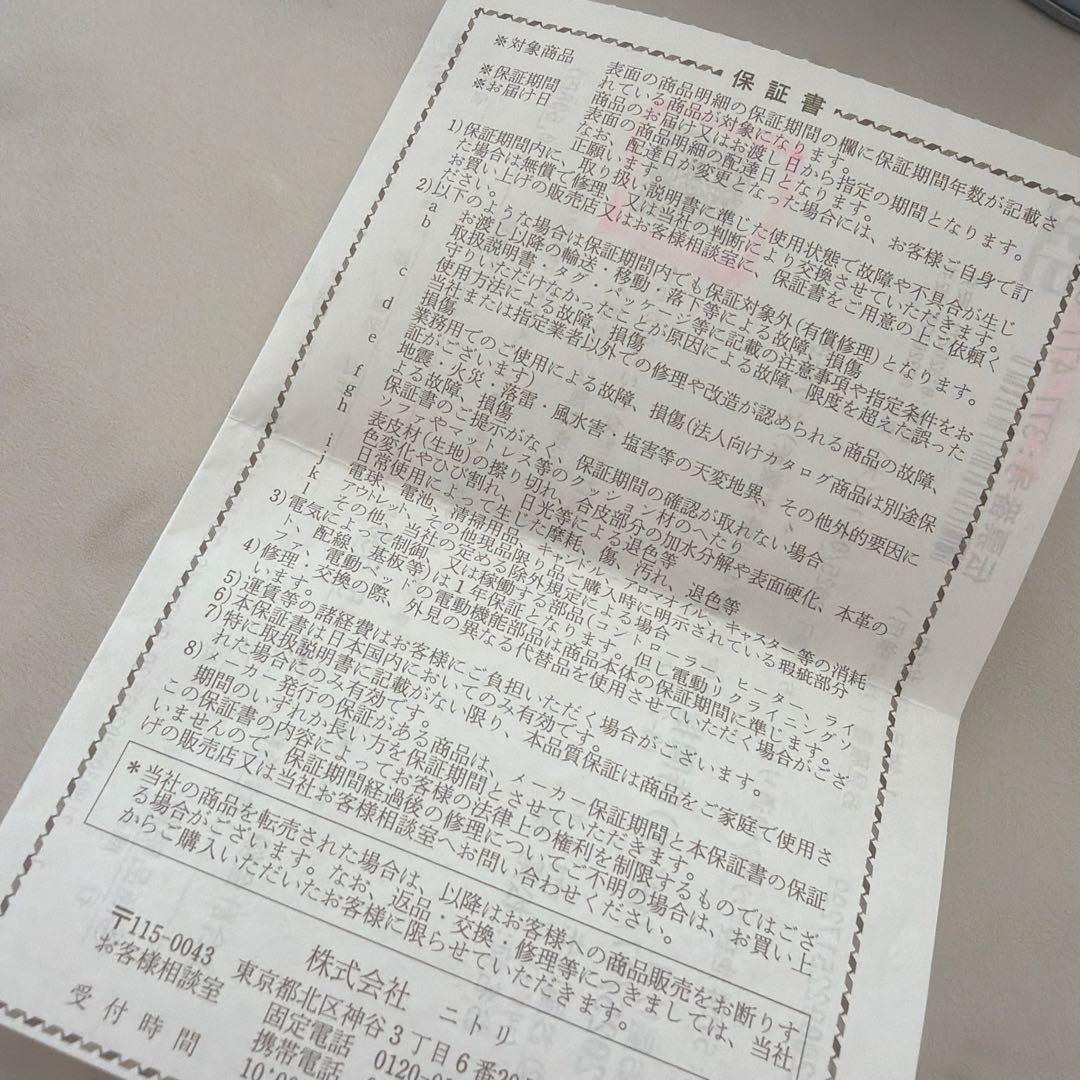 保証書
※対象商品 表面の商品明細の保証期間の欄に保証期間年数が記載さ
れている商品が対象になります。
※保証期間 商品のお届け又はお渡し日から指定の期間となります。
※お届け日 表面の商品明細の配達日となります。
なお、配達日が変更となった場合には、お客様ご自身で訂
正願います。
1)保証期間内に、取り扱い説明書に準じた使用状態で故障や不具合が生じ
た場合は無償で修理又は当社の判断により交換させていただきます。
お買い上げの販売店又はお客様相談室に、保証書をご用意の上ご依頼く
ださい。
2)以下のような場合は保証期間内でも保証対象外(有償修理)となります。
a お渡し以降の輸送・移動・落下等による故障、損傷
b 取扱説明書・タグ・パッケージ等に記載の注意事項や指定条件をお
守りいただけなかったことが原因による故障、限度を超えた誤った
使用方法による故障、損傷
c 当社または指定業者以外での修理や改造が認められる商品の故障、
損傷
d 業務用でのご使用による故障、損傷(法人向けカタログ商品は別途保
証がございます)
e 地震・火災・落雷・風水害・塩害等の天変地異、その他外的要因に
よる故障、損傷
f 保証書のご提示がなく、保証期間の確認が取れない場合
g ソファやマットレス等のクッション材のへたり
h 表皮材(生地)の擦り切れ、合皮部分の加水分解や表面硬化、本革の
色変化やひび割れ、日光等による退色等
i 日常使用によって生じた摩耗、傷、汚れ、退色等
j 電球、電池、清掃用品、キャンドル、アロマオイル、キャスター等の消耗
k アウトレット、その他現品限り品ご購入時に明示されている瑕疵部分
l その他、当社の定める除外規定による場合
3)電気によって制御又は稼働する部品(コントローラー、ヒーター、ライ
ト、配線、基板等)は1年保証となります。但し電動リクライニングソ
ファ、電動ベッドの電動機能部品は商品本体の保証期間に準じます。
4)修理・交換の際、外見の異なる代替品を使用させていただく場合がござ
います。
5)運賃等の諸経費はお客様にご負担いただく場合がございます。
6)本保証書は日本国内においてのみ有効です。
7)特に取扱説明書に記載がない限り、本品質保証は商品をご家庭で使用さ
れた場合にのみ有効です。
8)メーカー発行の保証がある商品は、メーカー保証期間と本保証書の保証
期間のいずれか長い方を保証期間とさせていただきます。
この保証書の内容によってお客様の法律上の権利を制限するものではござ
いませんので、保証期間経過後の修理についてご不明の場合は、お買い上
げの販売店又は当社お客様相談室へお問い合わせください。
*当社の商品を転売された場合は、以降はお客様への商品販売をお断りす
る場合がございます。なお、返品・交換・修理等につきましては、当社
からご購入いただいたお客様に限らせていただきます。
株式会社 ニトリ
〒115-0043 東京都北区神谷3丁目6番20
お客様相談室 固定電話 0120-0
携帯電話
受付時間 10:0